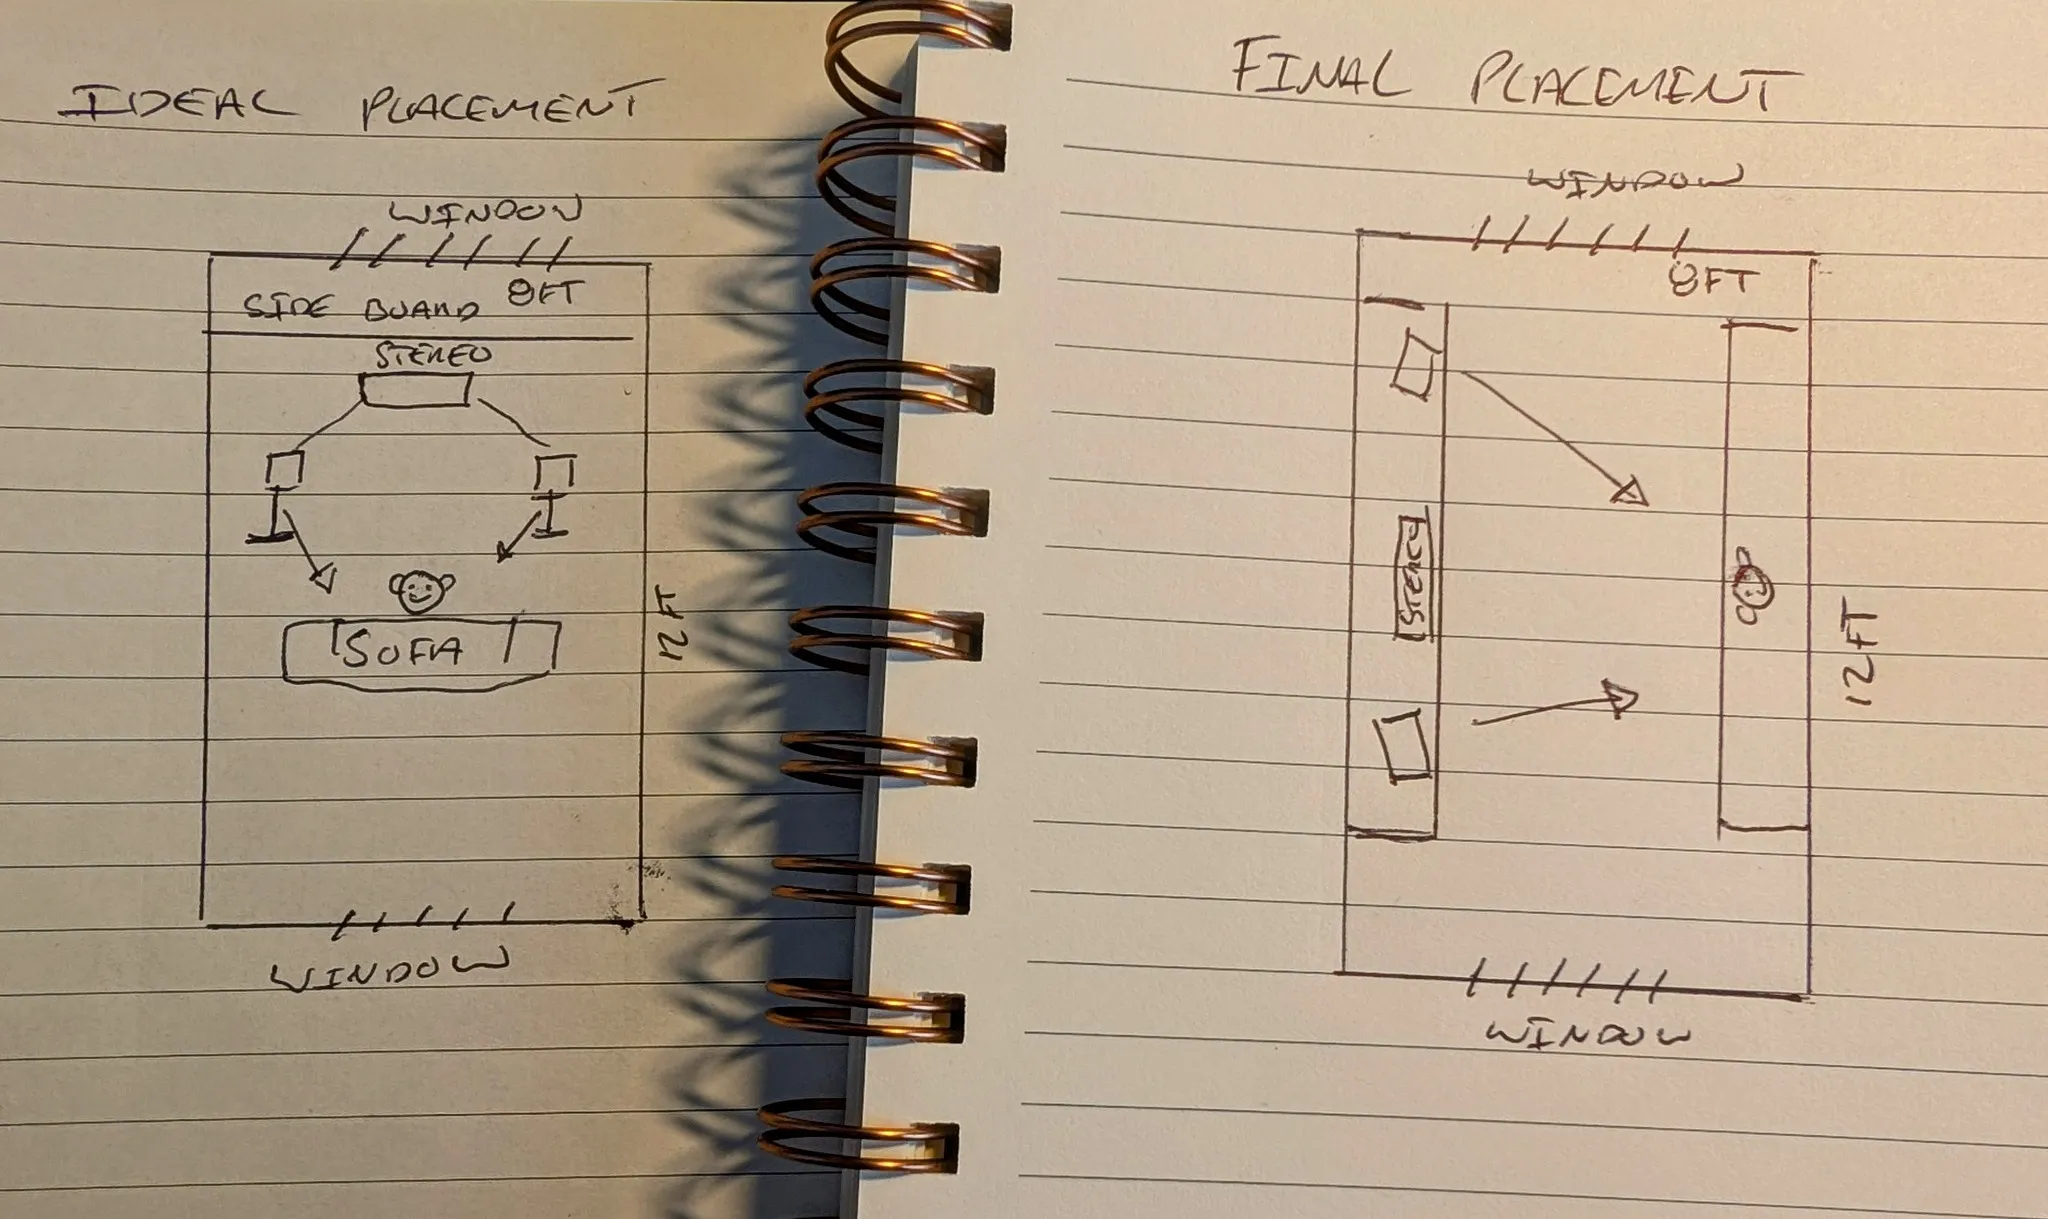 IDEAL PLACEMENT
WINDOW
8FT
SIDE BOARD
STEREO
SOFA
12FT
WINDOW
FINAL PLACEMENT
WINDOW
8FT
STEREO
12FT
WINDOW